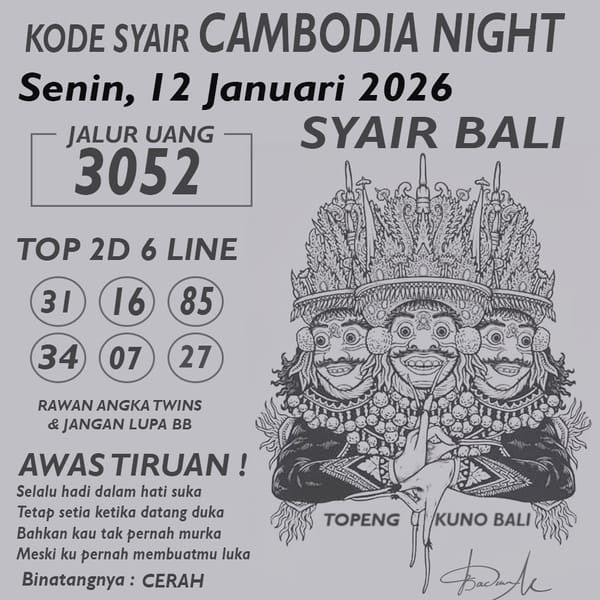 KODE SYAIR CAMBODIA NIGHT
Senin, 12 Januari 2026
JALUR UANG
3052
SYAIR BALI
TOP 2D 6 LINE
31 16 85
34 07 27
RAWAN ANGKA TWINS
& JANGAN LUPA BB
AWAS TIRUAN !
Selalu hadi dalam hati suka
Tetap setia ketika datang duka
Bahkan kau tak pernah murka
Meski ku pernah membuatmu luka
Binatangnya : CERAH
TOPENG KUNO BALI